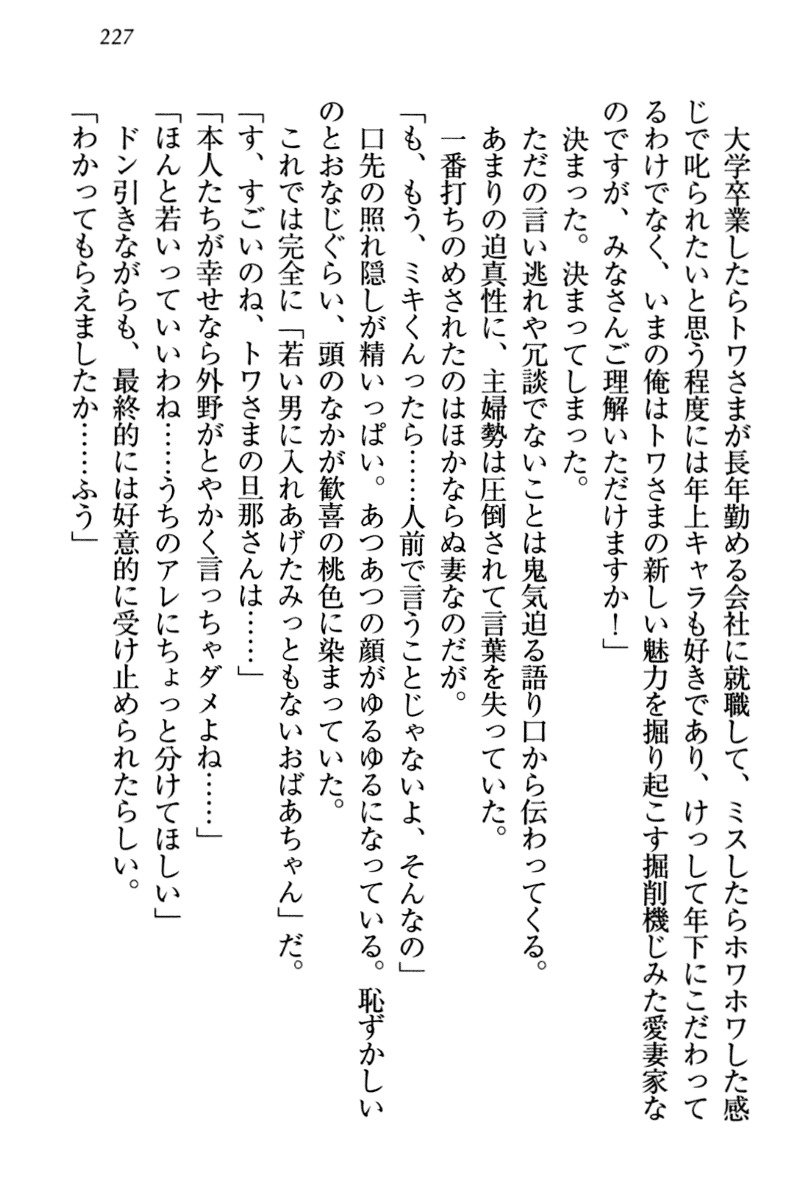 227
大学卒業したらトワさまが長年勤める会社に就職して、ミスしたらホワホワした感
じで叱られたいと思う程度には年上キャラも好きであり、けっして年下にこだわって
るわけでなく、いまの俺はトワさまの新しい魅力を掘り起こす掘削機じみた愛妻家な
のですが、みなさんご理解いただけますか！」
決まった。決まってしまった。
ただの言い逃れや冗談でないことは鬼気迫る語り口から伝わってくる。
あまりの迫真性に、主婦勢は圧倒されて言葉を失っていた。
一番打ちのめされたのはほかならぬ妻なのだが。
「も、もう、ミキくんったら……人前で言うことじゃないよ、そんなの」
口先の照れ隠しが精いっぱい。あつあつの顔がゆるゆるになっている。恥ずかしい
のとおなじぐらい、頭のなかが歓喜の桃色に染まっていた。
これでは完全に「若い男に入れあげたみっともないおばあちゃん」だ。
「す、すごいのね、トワさまの旦那さんは……」
「本人たちが幸せなら外野がとやかく言っちゃダメよね……」
「ほんと若いっていいわね……うちのアレにちょっと分けてほしい」
ドン引きながらも、最終的には好意的に受け止められたらしい。
「わかってもらえましたか……ふう」